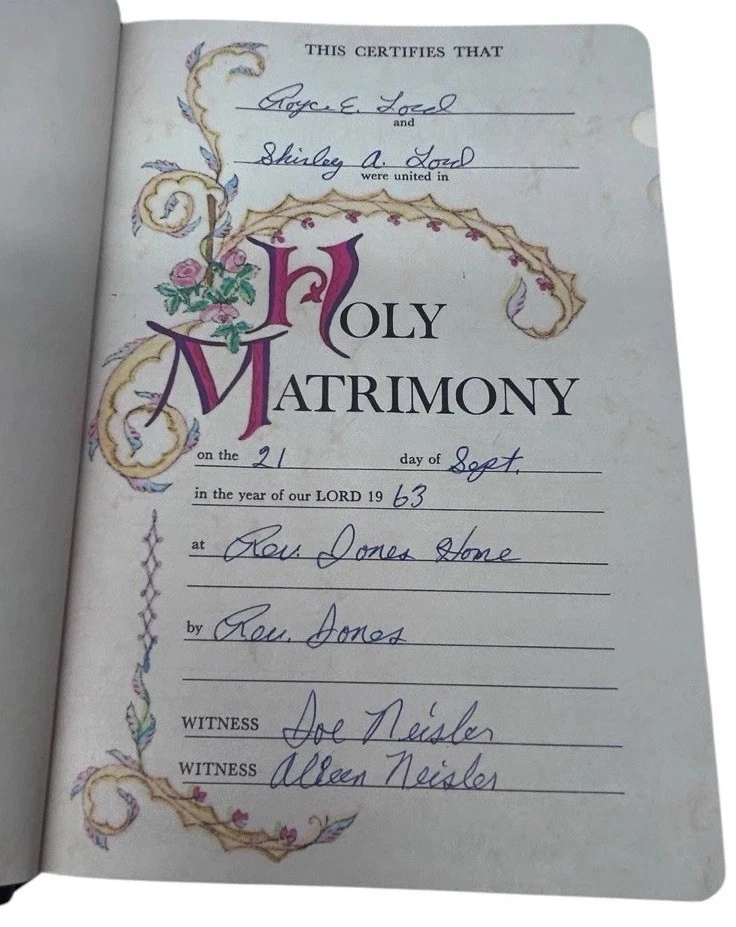 THIS CERTIFIES THAT
Royce E. Lord
and
Shirley A. Lord
were united in
HOLY
MATRIMONY
on the 21 day of Sept.
in the year of our LORD 19 63
at Rev. Jones Home
by Rev. Jones
WITNESS Joe Neisler
WITNESS Alleen Neisler